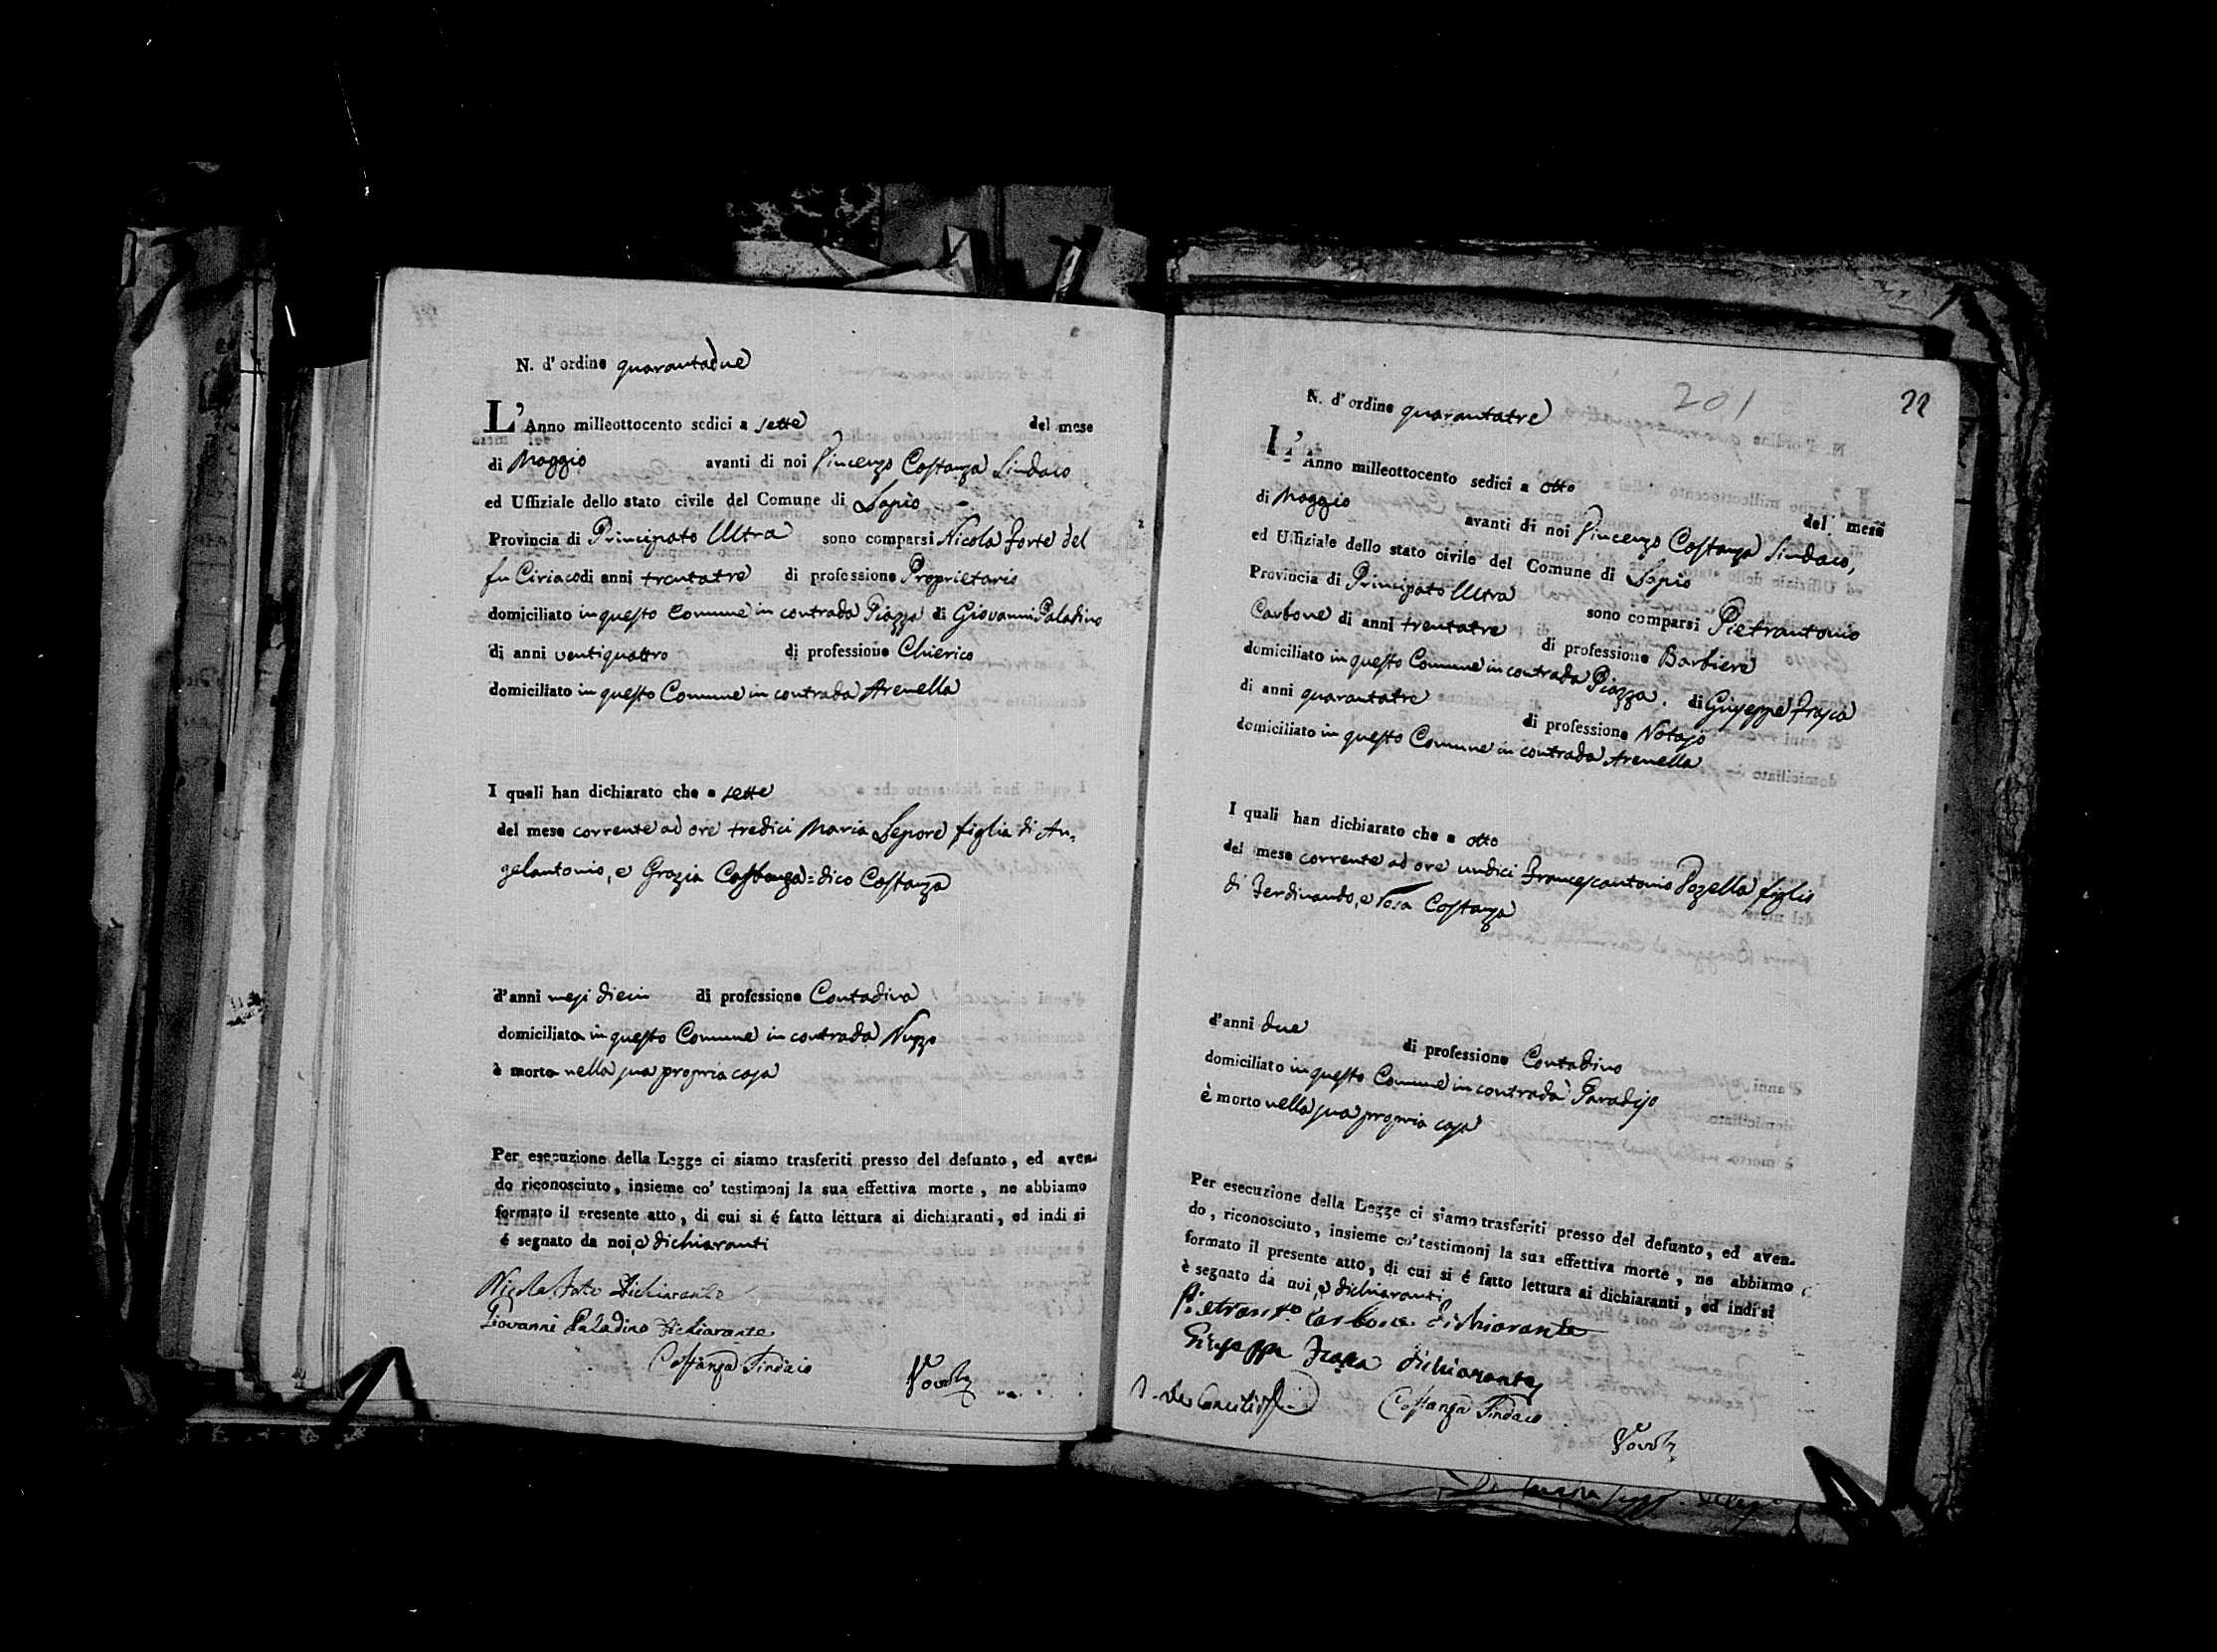 N. d' ordine quarantadue
L' Anno milleottocento sedici a sette del mese
di Maggio avanti di noi Vincenzo Costanza Sindaco
ed Uffiziale dello stato civile del Comune di Lapio
Provincia di Principato Ultra sono comparsi Nicola Forte del
fu Ciriaco di anni trentatre di professione Proprietario
domiciliato in questo Comune in contrada Piazza di Giovanni Paladino
di anni ventiquattro di professione Chierico
domiciliato in questo Comune in contrada Arenella
I quali han dichiarato che a sette
del mese corrente ad ore tredici Maria Lepore figlia di An=
gelantonio, e Grazia Costanza = dico Costanza
d'anni mesi dieci di professione Contadina
domiciliata in questo Comune in contrada Nuzzo
è morta nella sua propria casa
Per esecuzione della Legge ci siamo trasferiti presso del defunto, ed aven-
do riconosciuto, insieme co' testimonj la sua effettiva morte, ne abbiamo
formato il presente atto, di cui si é fatto lettura ai dichiaranti, ed indi si
é segnato da noi, e dichiaranti
Nicola Forte Dichiarante
Giovanni Paladino Dichiarante
Costanza Sindaco
201
22
N. d' ordine quarantatre
L' Anno milleottocento sedici a otto del mese
di Maggio avanti di noi Vincenzo Costanza Sindaco,
ed Uffiziale dello stato civile del Comune di Lapio
Provincia di Principato Ultra sono comparsi Pietrantonio
Carbone di anni trentatre di professione Barbiere
domiciliato in questo Comune in contrada Piazza. di Giuseppe Frasca
di anni quarantatre di professione Notajo
domiciliato in questo Comune in contrada Arenella
I quali han dichiarato che a otto
del mese corrente ad ore undici Francescantonio Pozzella figlio
di Ferdinando, e Rosa Costanza
d'anni due di professione Contadino
domiciliato in questo Comune in contrada Paradiso
è morto nella sua propria casa
Per esecuzione della Legge ci siamo trasferiti presso del defunto, ed aven-
do, riconosciuto, insieme co' testimonj la sua effettiva morte, ne abbiamo
formato il presente atto, di cui si é fatto lettura ai dichiaranti, ed indi si
è segnato da noi, e dichiaranti
Pietrant.o Carbone dichiarante
Giuseppe Frasca dichiarante
Costanza Sindaco